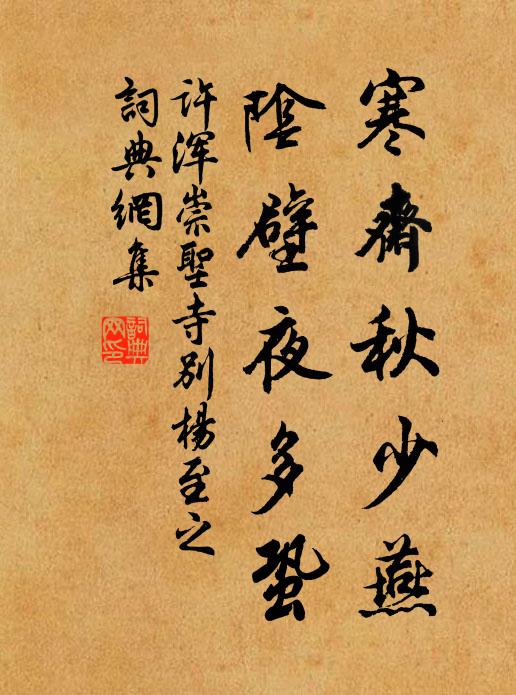 寒齋秋少燕
陰壁夜多蛩
许浑崇聖寺别楊至之
詞典網集
詞典
网印